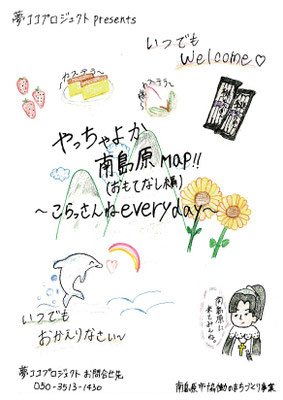 夢ココプロジェクト presents
いつでも
welcome♡
カステラ〜
やっちゃよか
南島原map!!
(おもてなし編)
〜こらっさんねeveryday〜
いつでも
おかえりなさい〜
南島原に
来てみんね。
夢ココプロジェクト お問合せ先
050-3513-1430
南島原市協働のまちづくり事業